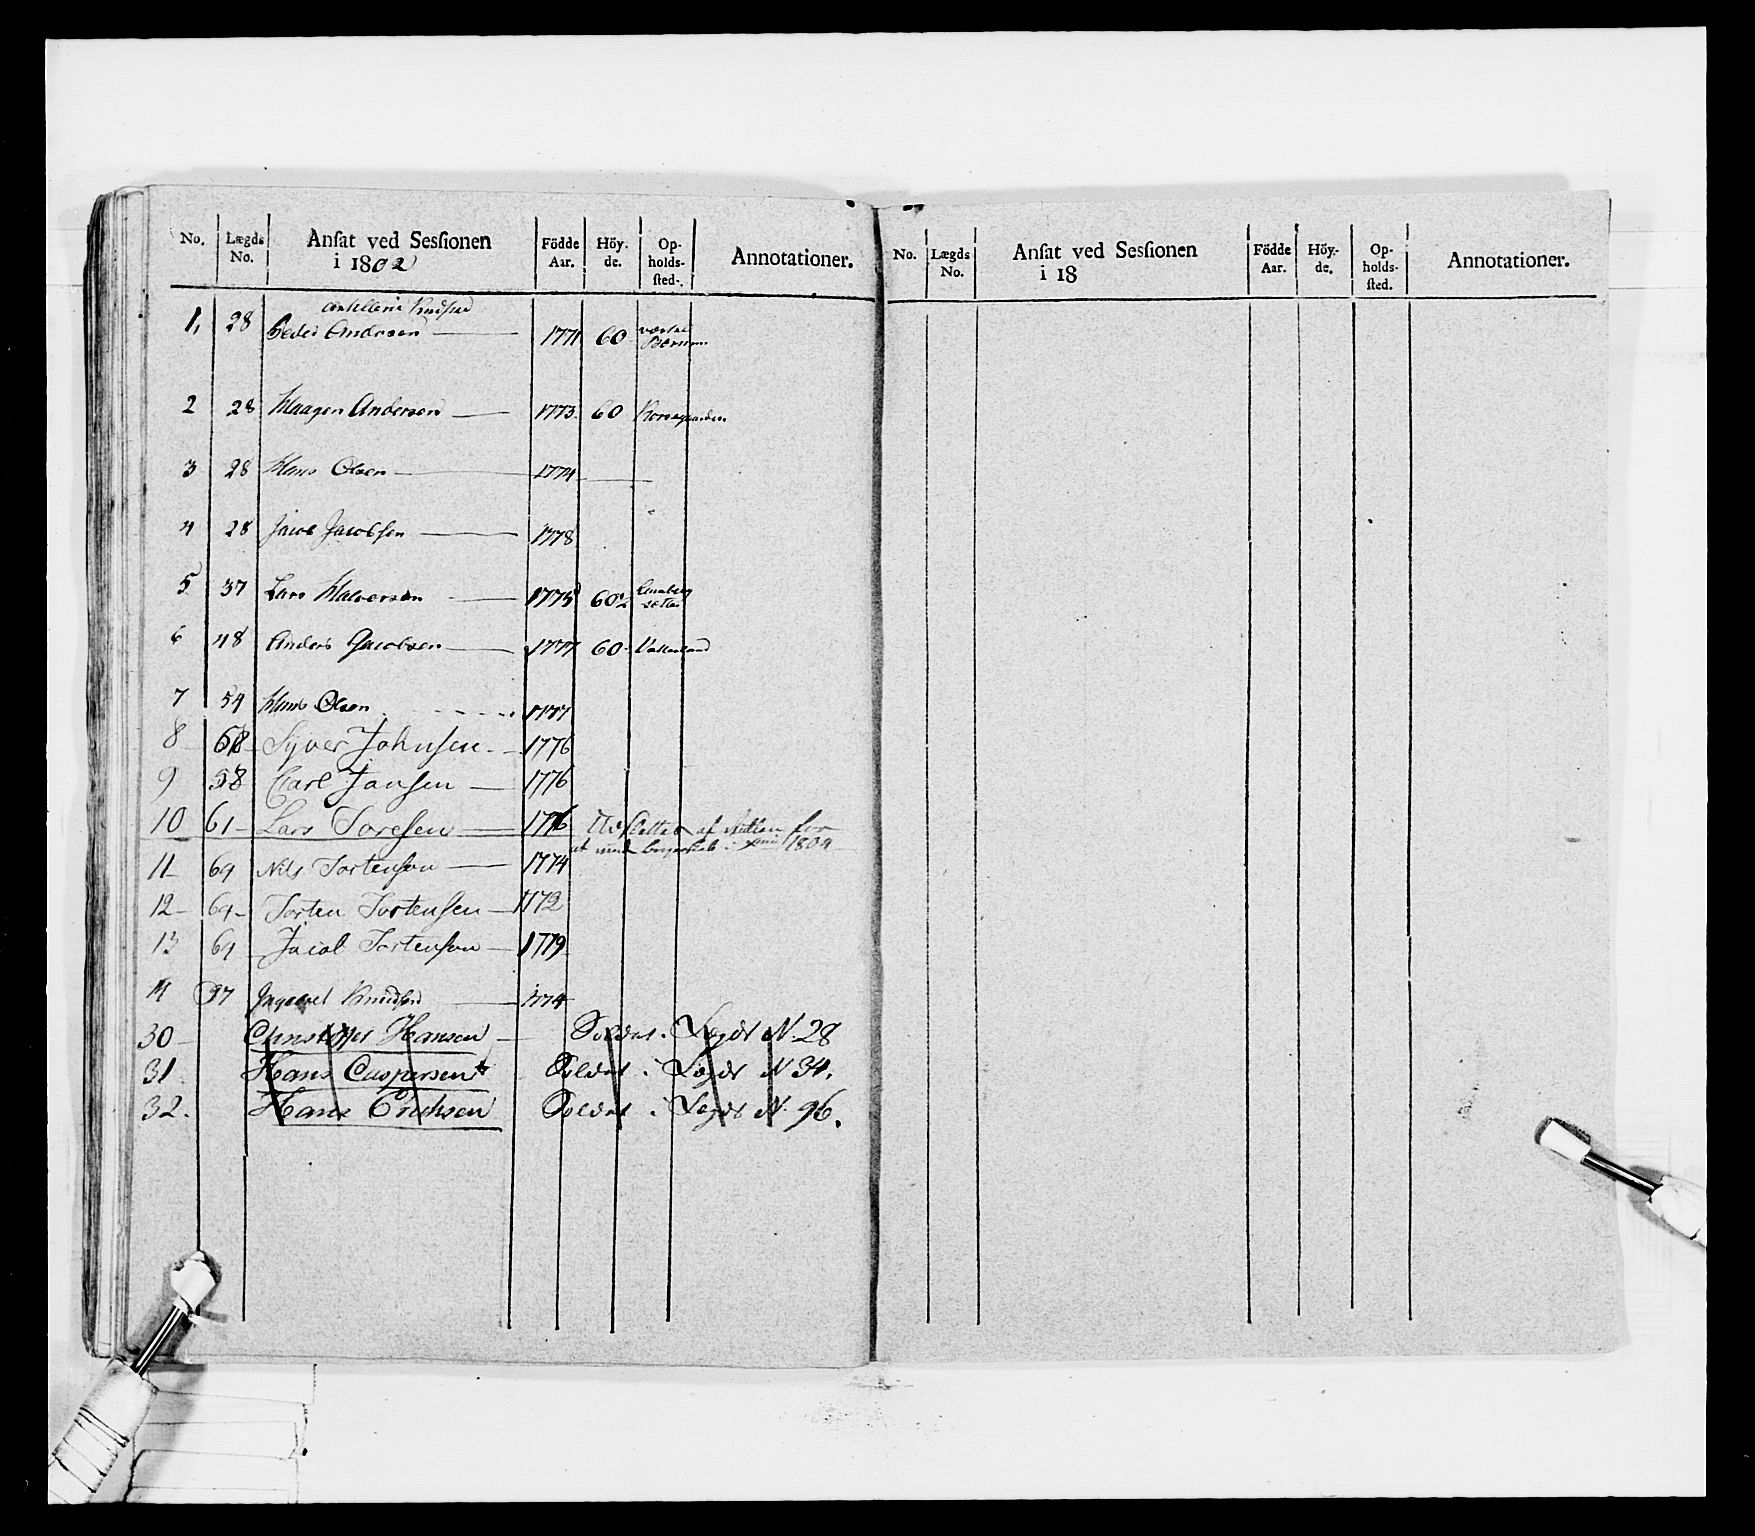 No. Lægds No. Ansat ved Sessionen i 1802 Födde Aar. Höy. de. Op- holds- sted. Annotationer.
artillerie Kudsker
1, 28 Peder Andersen 1771 60 væster Bærum
2 28 Haagen Andersen 1773 60
3 28 Hans Olsen 1774
4 28 Jacob Jacobsen 1778
5 37 Lars Halvorsen 1775 60½
6 48 Anders Jacobsen 1777 60
7 54 Hans Olsen 1777
8 68 Syver Johnsen 1776
9 58 Carl Jansen 1776
10 61 Lars Toresen 1776 Udslettet af Rullen for
11 64 Nils Tortensen 1774 1804
12 64 Torten Tortensen 1772
13 64 Jacob Tortensen 1779
14 97 Ingebret Knudsen 1774
30 Christopher Hansen Soldat i Lægds N. 28
31 Hans Caspersen Soldat i Lægds N 34.
32. Hans Eriksen Soldat i Lægds N. 96.
No. Lægds No. Ansat ved Sessionen i 18 Födde Aar. Höy- de. Op- holds- sted. Annotationer.